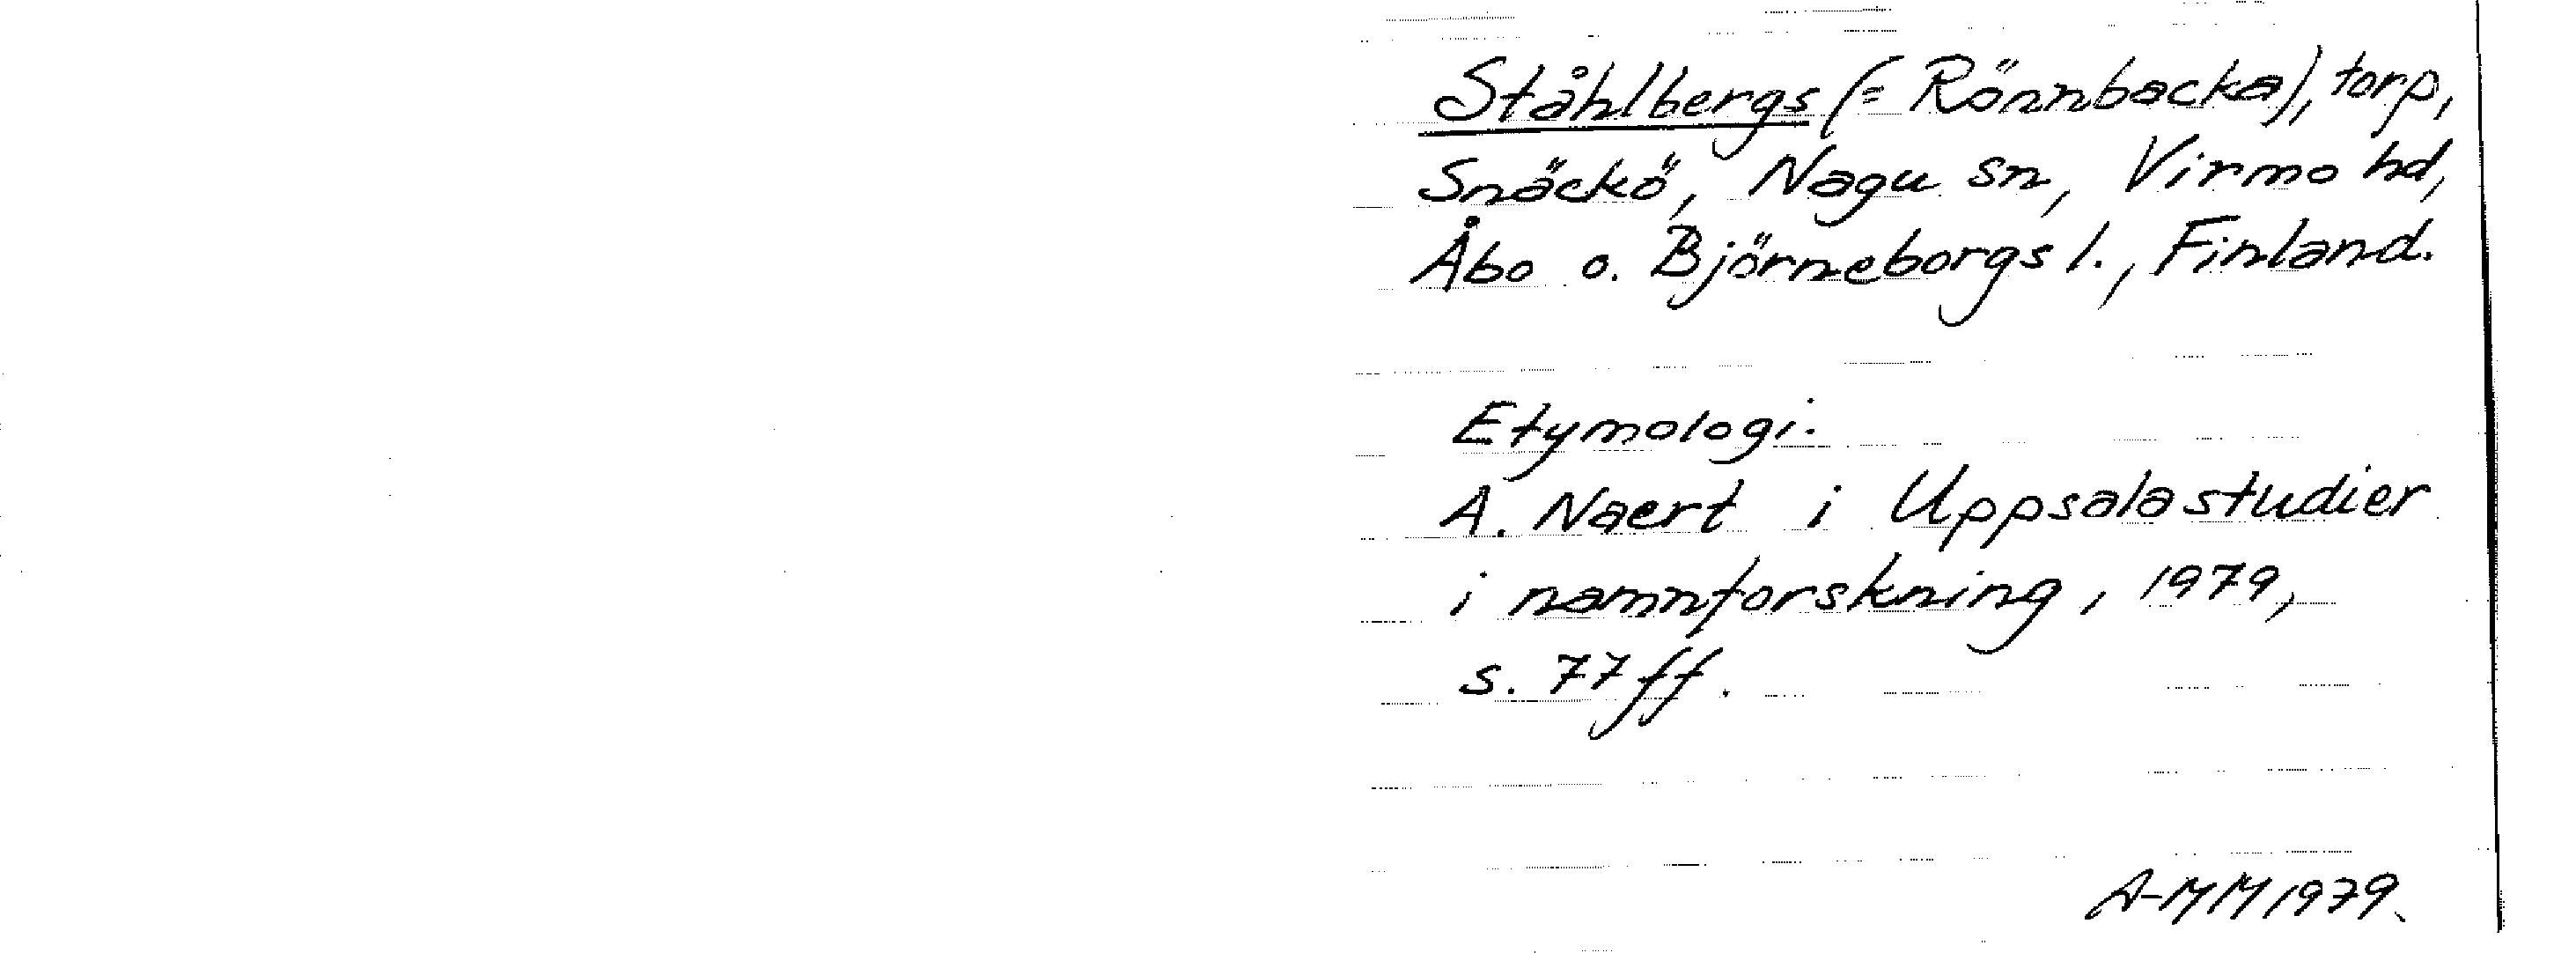 Ståhlbergs (= Rönnbacka), torp,
Snäckö, Nagu sn, Virmo hd,
Åbo o. Björneborgs l., Finland.
Etymologi.
A. Naert i Uppsalastudier
i namnforskning, 1979,
s. 77 ff.
A-MM 1979.